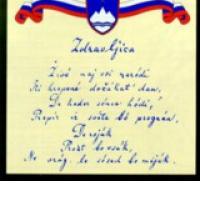 Zdravljica
Živé naj vsi narodi
Ki hrepené dočakat dan,
De koder sonce hódi,
Prepir iz svéta bó pregnán,
De roják
Prost bo vsák,
Ne vrag, le sosed bo meják.